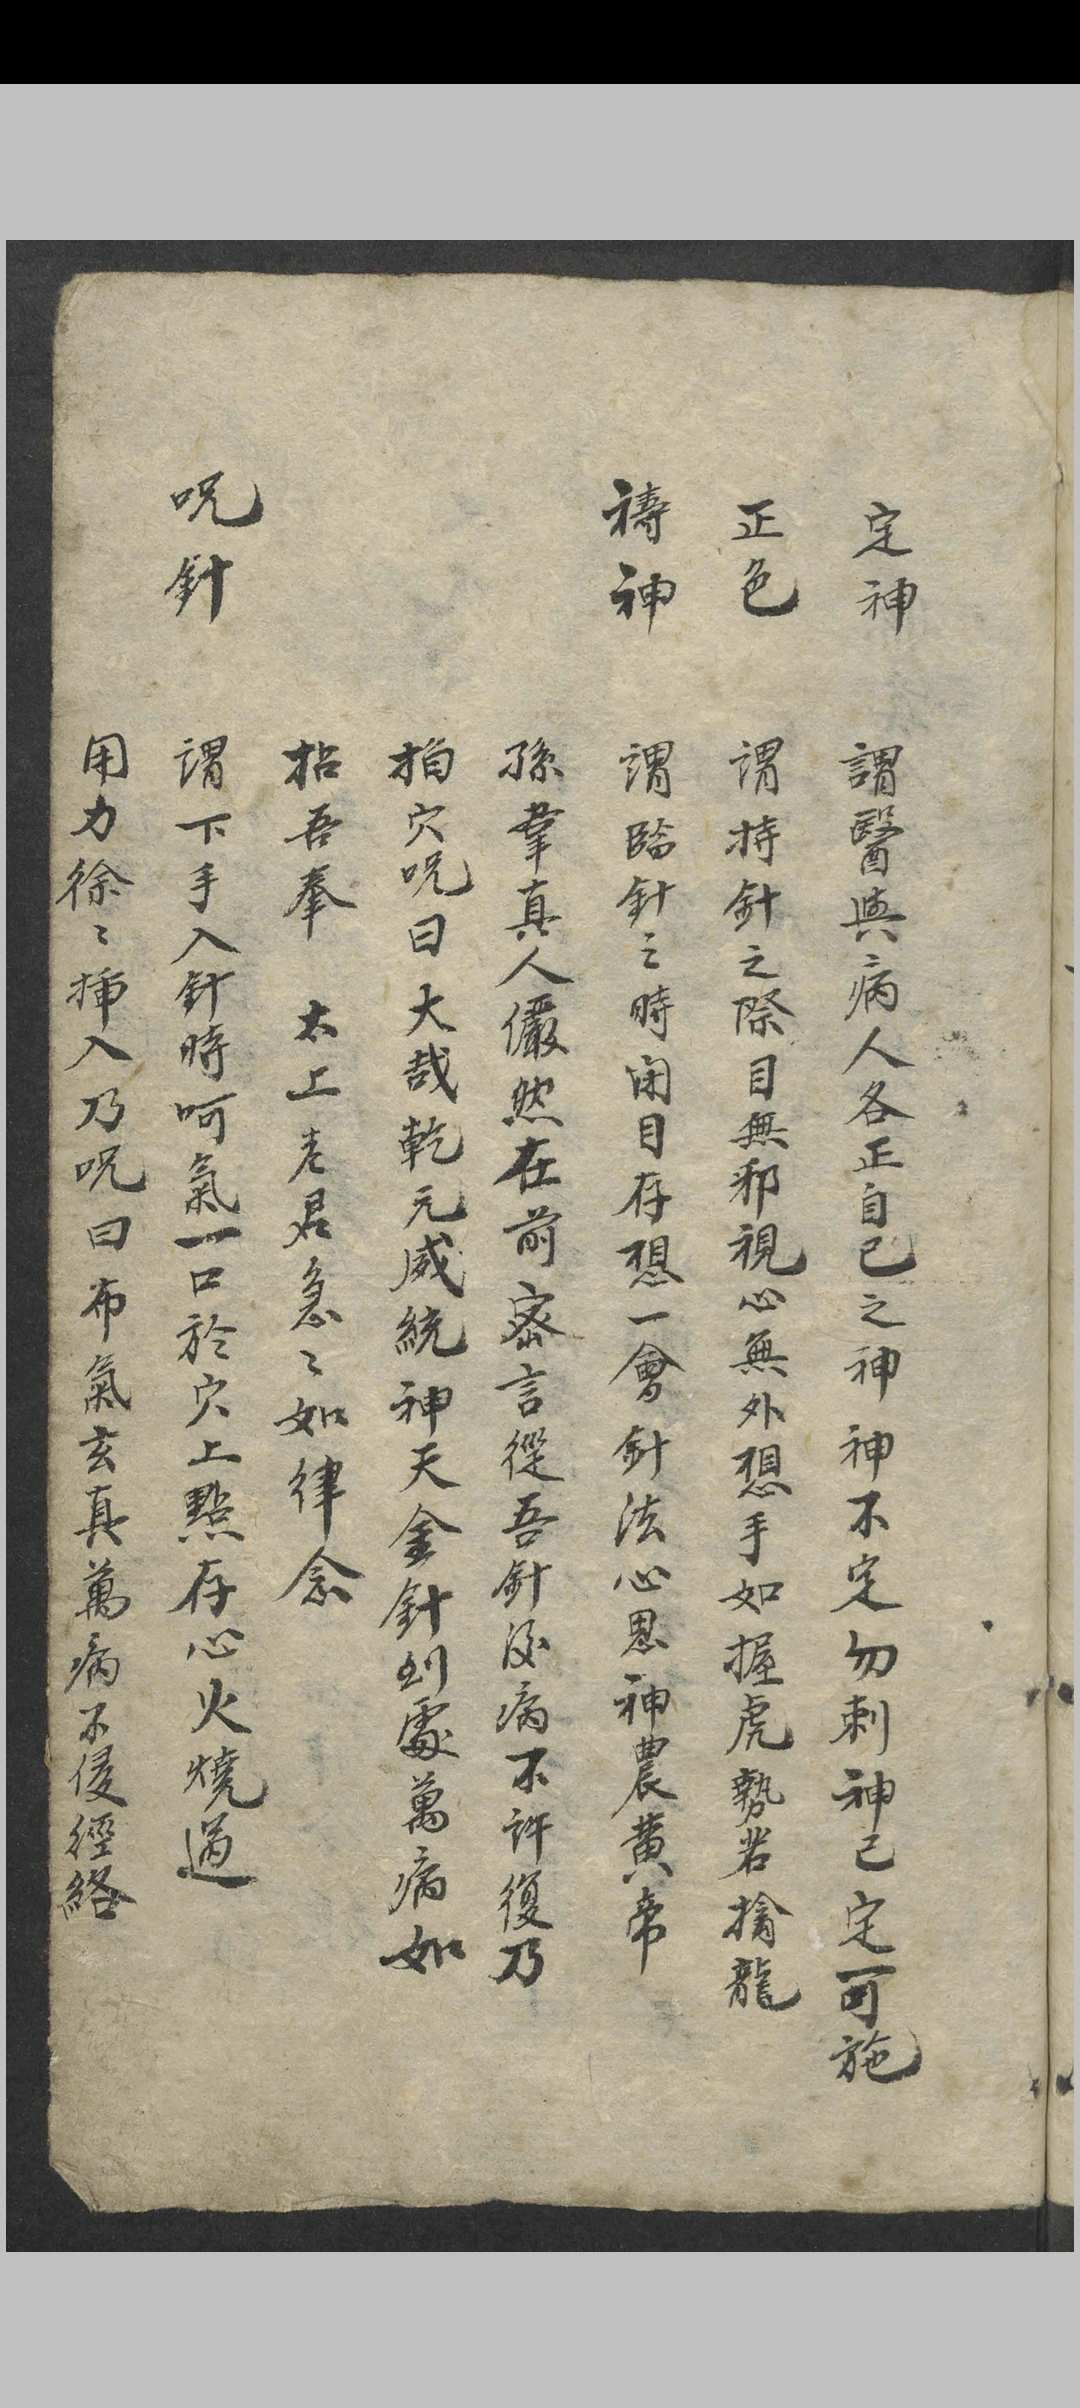 定神 謂醫與病人各正自己之神神不定勿刺神已定可施
正色 謂持針之際目無邪視心無外想手如握虎勢若擒龍
禱神 謂臨針之時闭目存想一會針法心思神農黄帝
孫韋真人儼然在前密言從吾針後病不許復乃
掐穴呪曰大哉乾元威統神天金針到處萬病如
拈吾奉 太上老君急〻如律念
呪針 謂下手入針時呵氣一口於穴上點存心火燒過
用力徐〻揷入乃呪曰布氣玄真萬病不侵經絡